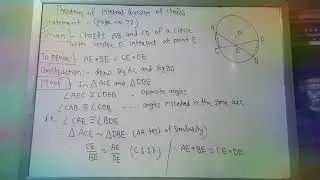 Theorem of internal division of chords
Statement - (page no 72)
Given - chords AB and CD of a circle
with centre P intersect at point E.
To prove : AE × BE = CE × DE
Construction :- draw seg AC and seg BD
Proof : In △ACE and △DBE
∠AEC ≅ ∠DEB ... opposite angles
∠CAB ≅ ∠CDB ... angles inscribed in the same arc
i.e. ∠CAE ≅ ∠BDE
∴ △ACE ~ △DBE (AA test of similarity)
CE/BE = AE/DE (C.S.S.T) ∴ AE × BE = CE × DE
A
D
P
E
C
B